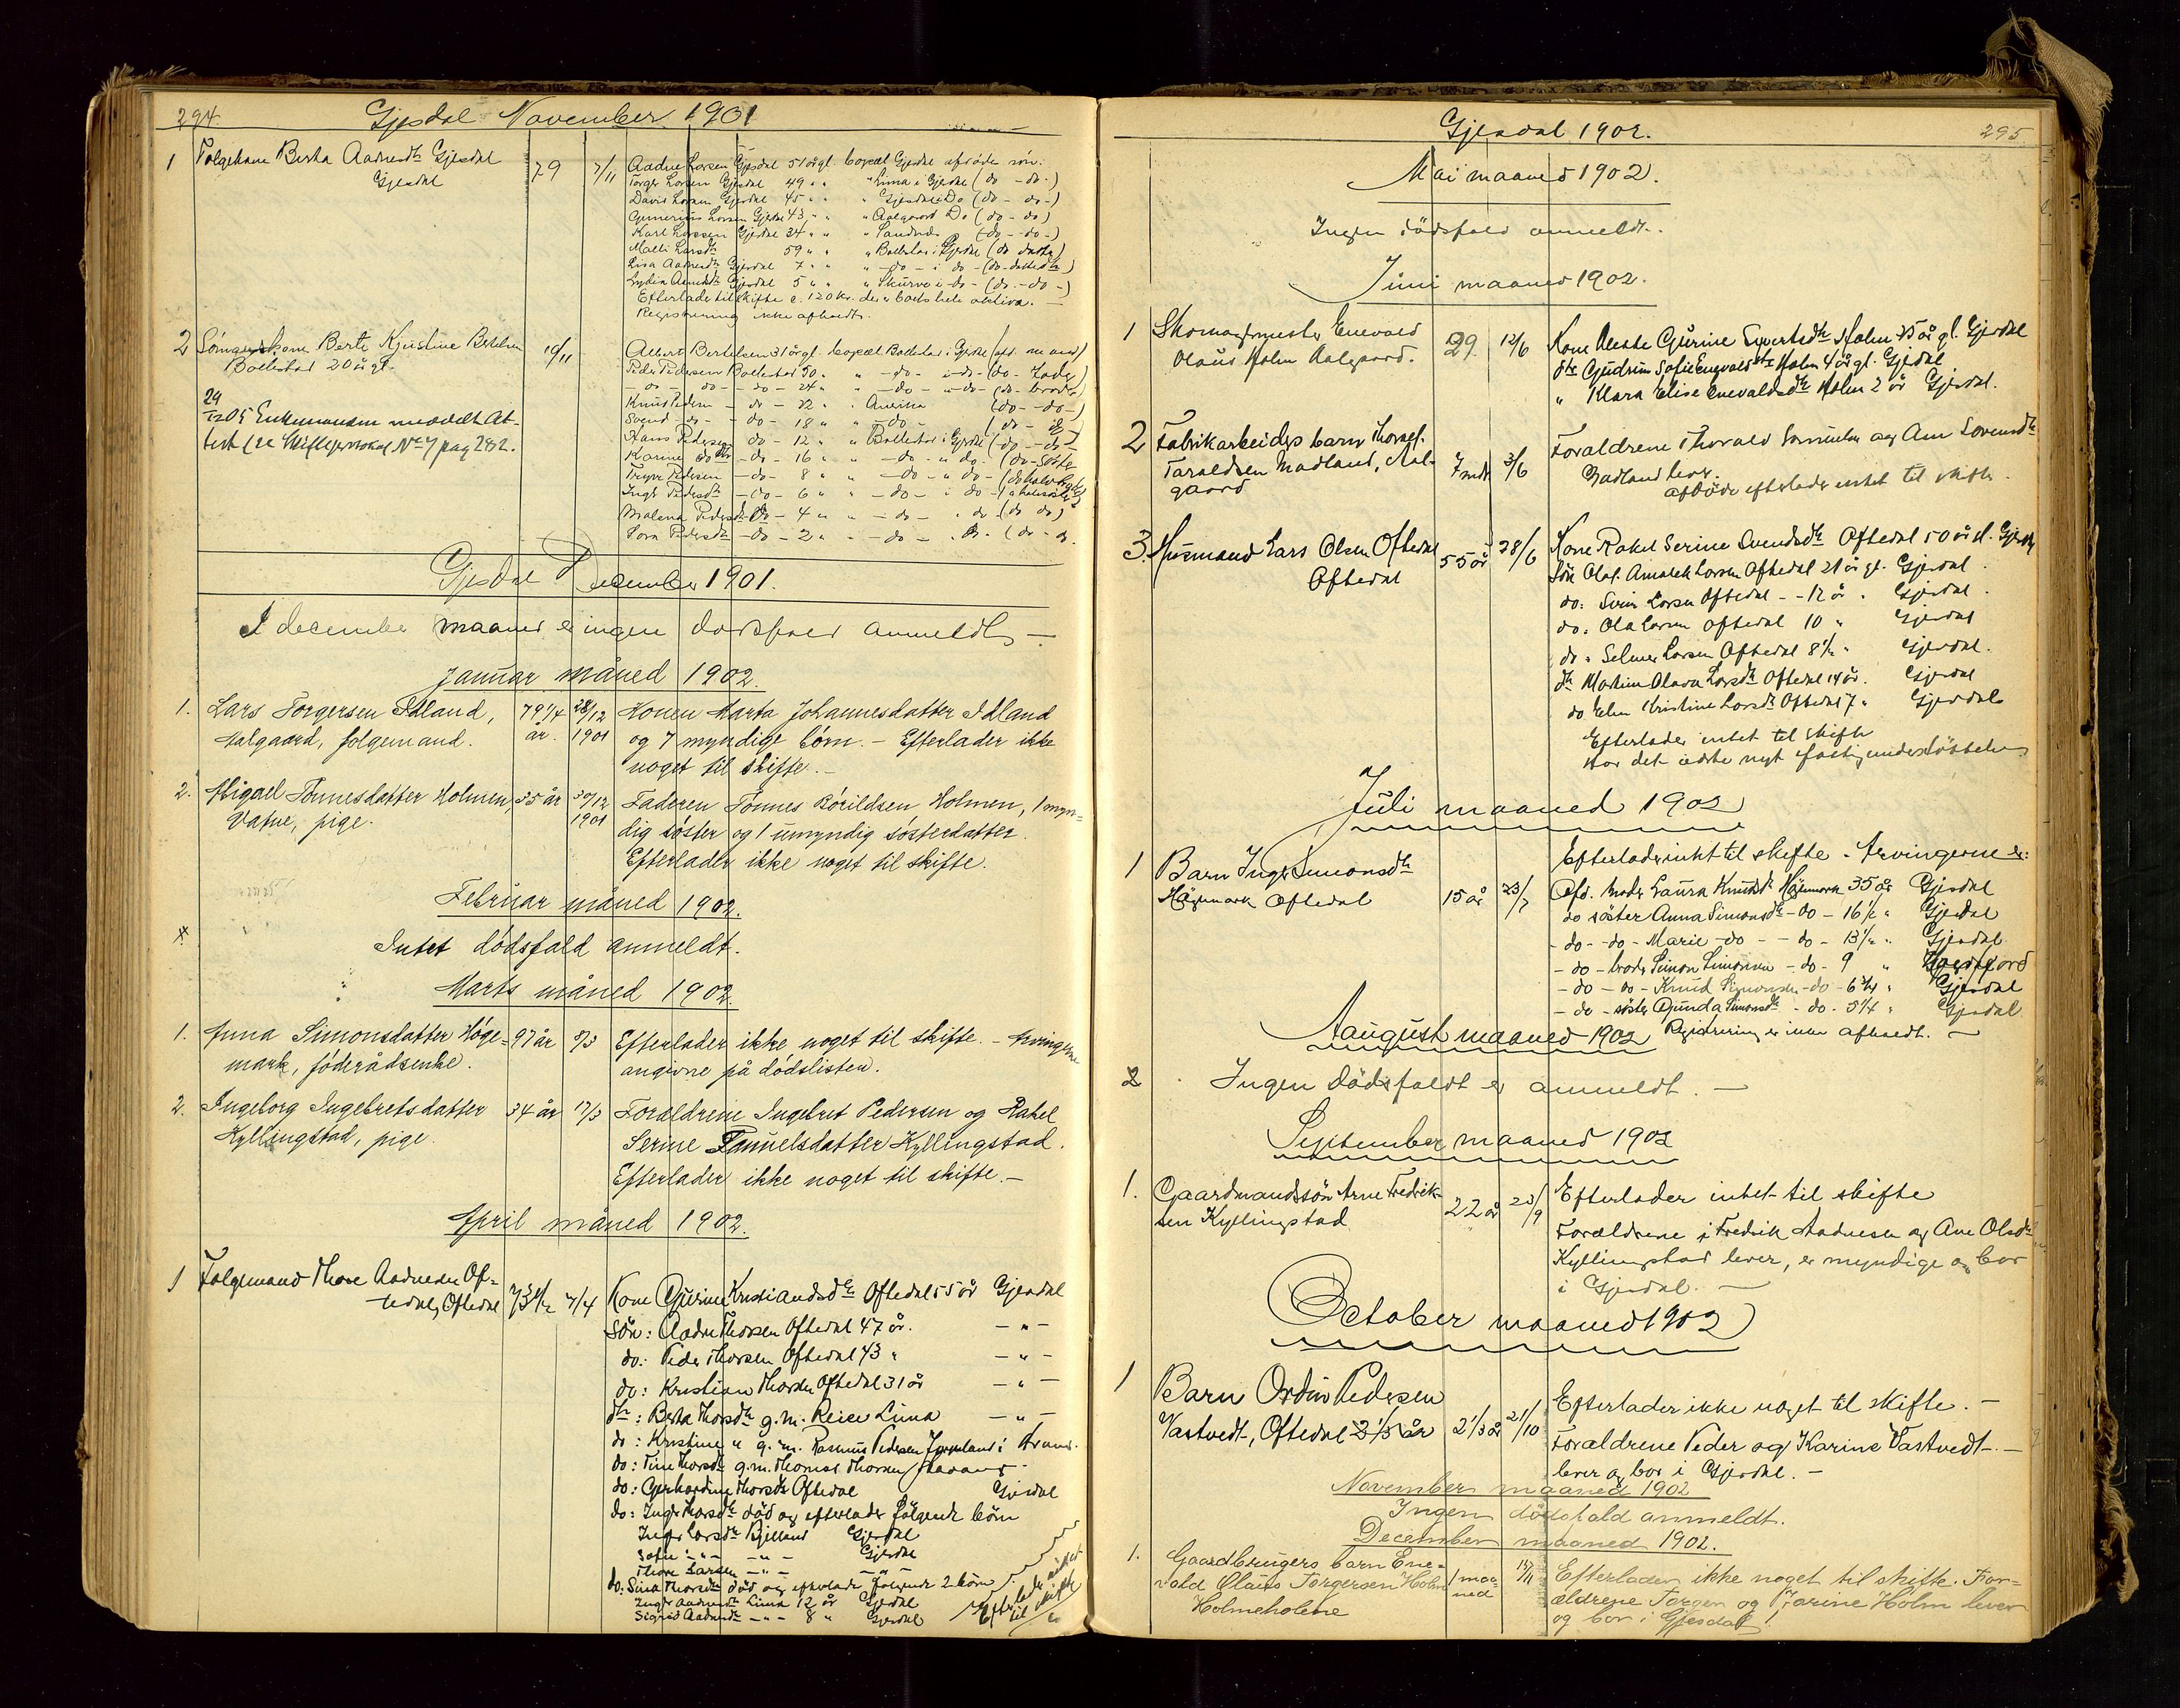 294.
Gjesdal November 1901
1 Folgekone Berta Aadnesdtr Gjesdal
Gjesdal
79 7/11
Aadne Larsen Gjesdal 51 år gl. bopæl Gjesdal afdøde søn.
Torger Larsen Gjesdal 49 " " " Lima i Gjesdal (do - do -)
David Larsen Gjesdal 45 " " " Gjesdal i Do (do - do -)
Larsen Gjesdal 43 " " " Aalgaard Do (do - do)
Karl Larssen Gjesdal 34 " " " Sandnes (do - do -)
Malli Larsdtr 59 " " " Bollestad i Gjesdal (do datter)
Lisa Aadnesdtr Gjesdal 7 " " " - do - i do - (do - datterdtr)
Gjesdal 5 " " " Skurve i - do - (do - do -)
Efterlader til skifte c. 120 kr. der er boets hele aktiva. -
Registrering ikke afholdt.
2 Berte Kjistine Bertelsen
Bollestad 20 år gl.
19/11
Albert Bertelsen 31 år gl. bopæl Bollestad i Gjesdal
Peder Pedersen Bollestad 50 " " - do - i - do - (do - Fader)
- do - do - do - 24 " " - do - " do - (do - broder)
Knud Pedersen - do - 22 " " Amerika (do - do -)
Svend - do - - do - 18 " " - do -
Hans Pedersen - do - 12 " " Bollestad i Gjesdal (do - do -)
Karine do dtr - do - 16 " " - do - " do - (do - søster
Trygve Pedersen - do - 8 " " - do - " do -
Inger Pedersdtr - do - 6 " " - do - i do -
Malena Pedersdtr - do - 4 " " - do - " do - (do do)
Pedersdtr - do - 2 " " - do - " do - (do - do
29/12 05 Enkemanden meddelt At-
test (se Skifteprotokol No 7 pag 282.
Gjesdal December 1901.
I december maaned er ingen dødsfald anmeldt. -
Januar måned 1902.
1. Lars Torgersen Idland, 79 1/4 28/12 Konen Marta Johannesdatter Idland
Aalgaard, folgemand. år. 1901 og 7 myndige børn. - Efterlader ikke
noget til skifte. -
2. Abigael Tønnesdatter Holmen, 35 år 30/12 Faderen Tønnes Børildsen Holmen, 1 myn-
Vatne, pige. 1901 dig søster og 1 umyndig søsterdatter.
Efterlader ikke noget til skifte.
Februar måned 1902.
Intet dødsfald anmeldt.
Marts måned 1902.
1. Anna Simonsdatter Høge- 97 år 8/3 Efterlader ikke noget til skifte. - Arvingerne
mark, føderådsenke. angivne på dødslisten.
2. Ingeborg Ingebretsdatter 34 år 17/3 Forældrene Ingebret Pedersen og Rakel
Kyllingstad, pige. Serine Samuelsdatter Kyllingstad.
Efterlader ikke noget til skifte. -
April måned 1902.
1 Folgemand Thore Aadnesen Of-
tedal, Oftedal 73 1/2 7/4 Kone Gurine Kristiandsdtr Oftedal 55 år Gjesdal
Søn: Aadne Thorsen Oftedal 47 år. - " -
do: Peder Thorsen Oftedal 43 " - " -
do: Kristian Thorsen Oftedal 31 år - " -
dtr: Berta Thorsdtr g.m. Reier Lima - " -
do: Kristine " g.m. Rasmus Pedersen i
do: Tine Thorsdtr g.m. Thomas Thorsen
do: Gerhardine Thorsdtr Oftedal Gjesdal
do: Inger Thorsdtr død og efterlader følgende børn
Inger Larsdtr Gjesdal
Sofie - " - - " - Gjesdal
Thore Larsen - " - - " -
do: Sina Thorsdtr død og efterlader følgende 2 børn
Inger Aadnesdtr Lima 12 år Gjesdal
Sigrid Aadnesdtr - " - 8 " Gjesdal
Efterlader intet
til skifte
Gjesdal 1902.
295.
Mai maaned 1902.
Ingen dødsfald anmeldt.
Juni maaned 1902.
1 Skomagermester Enevald 29. 12/6 Kone Gurine Sivertsdtr Holm 25 år gl. Gjesdal
Olaus Holm Aalgaard. dtr Gudrun Sofie Enevaldsdtr Holm 4 år gl. Gjesdal
" Klara Elise Enevaldsdtr Holm 2 år Gjesdal.
2 Fabrikarbeiders barn
Madland, Aal-
gaard
7 mdr 3/6 Forældrene Thorald og Ane
Madland lever.
afdøde efterlader intet til skifte.
3. Husmand Lars Olsen Oftedal 55 år 28/6 Kone Rakel Serine Svendsdtr Oftedal 50 år gl. Gjesdal
Oftedal
Søn Olaf Larsen Oftedal 21 år gl. Gjesdal.
do: Svein Larsen Oftedal - - 12 år. Gjesdal.
do: Ola Larsen Oftedal 10 " Gjesdal
do: Selmer Larsen Oftedal 8 1/2 " Gjesdal.
dtr Martine Olava Larsdtr Oftedal 14 år. Gjesdal
do. Kristine Larsdtr Oftedal 7 " Gjesdal
Efterlader intet til skifte
har det sidste nydt fattigunderstøttelse
Juli maaned 1902
Efterlader intet til skifte. Arvingerne er:
1 Barn Inger Simonsdtr
Høgmark Oftedal 15 år 23/7 Afd. moder Laura Knudsdtr Høgmark 35 år Gjesdal
do søster Anna Simonsdtr - do - 16 1/2 " Gjesdal
- do - - do - Marie - do - - do - 13 1/2 " Gjesdal
- do - broder Simon Simonsen - do - 9 " Høgsfjord
- do - - do - Knud Simonsen - do - 6 3/4 " Gjesdal
- do - søster Gunda Simonsdtr - do - 5 1/4 " Gjesdal
Registrering er ikke afholdt. -
Aaugust maaned 1902
Ingen dødsfaldt er anmeldt. -
September maaned 1902
1. Gaardmandssøn Arne Fredrik- 22 år 23/9 Efterlader intet til skifte
sen Kyllingstad
Forældrene i Fredrik Aadnesen og Ane Olsdtr
Kyllingstad lever, er myndige og bor
i Gjesdal. -
October maaned 1902
1 Barn Ordin Pedersen
Vastvedt, Oftedal 2 1/3 år 2 1/3 år 21/10 Efterlader ikke noget til skifte. -
Forældrene Peder og Karine Vastvedt -
lever og bor i Gjesdal. -
November maaned 1902
Ingen dødsfald anmeldt.
December maaned 1902.
1. Gaardbrugers barn Ene-
vald Olaus Torgersen Holm 1 maa-
ned Efterlader ikke noget til skifte. For-
Holmeholene ældrene Torger og Karine Holm lever
og bor i Gjesdal.